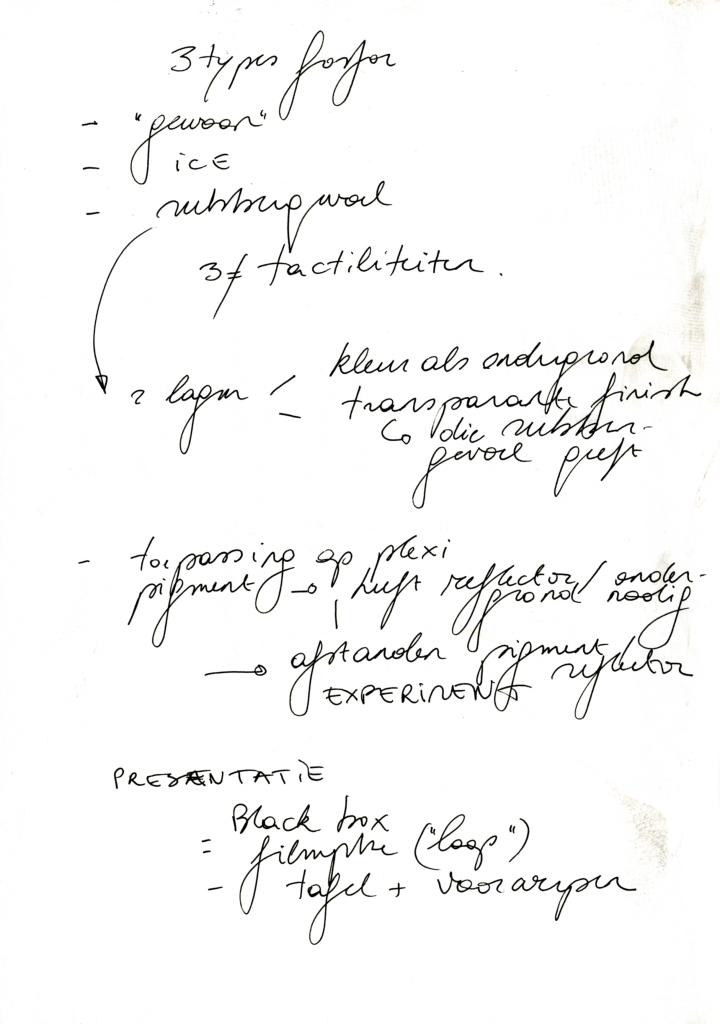 3 types fosfor
- "gewoon"
- ICE
- rubbergevoel
3 ≠ tactiliteiten.
2 lagen - kleur als ondergrond
- transparante finish
↳ die rubber-
gevoel geeft
- toepassing op plexi
pigment → heeft reflector/onder-
grond nodig
→ afstanden pigment/
reflector
EXPERIMENT
PRESENTATIE
Black box
= filmpje ("loop")
- tafel + voorwerpen